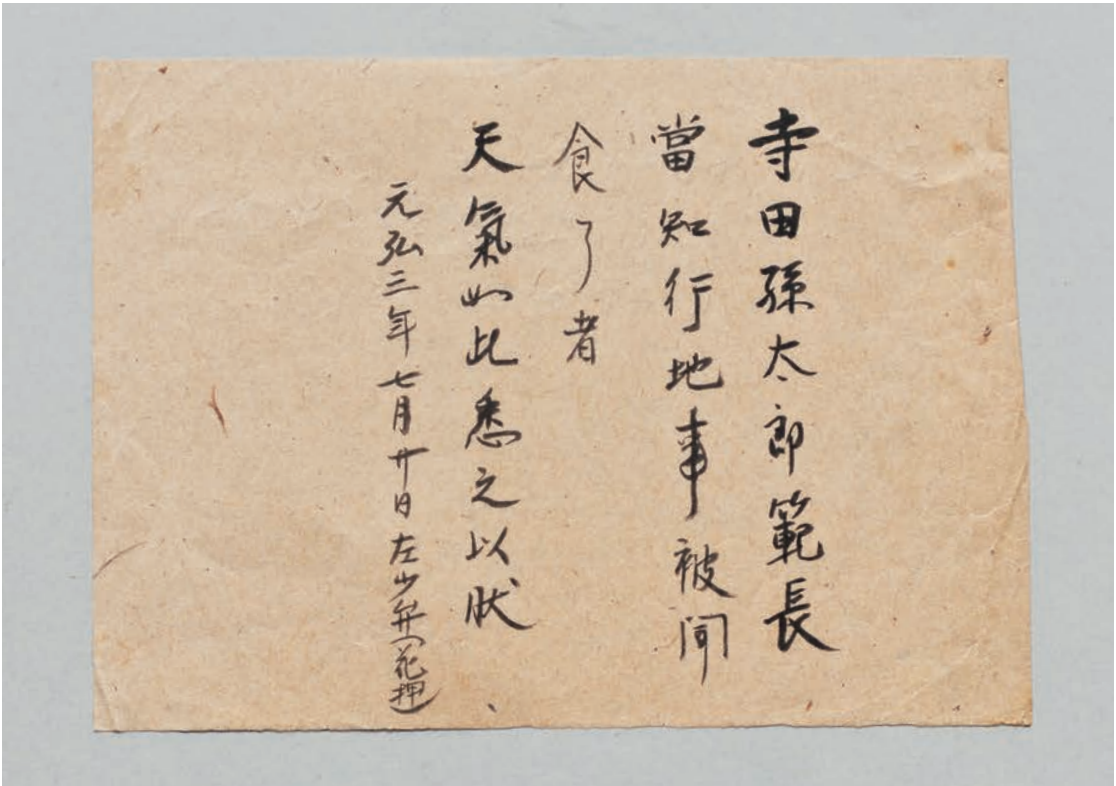 寺田孫太郎範長
當知行地事被聞
食了者
天氣如此悉之以状
元弘三年七月廿日左少弁(花押)